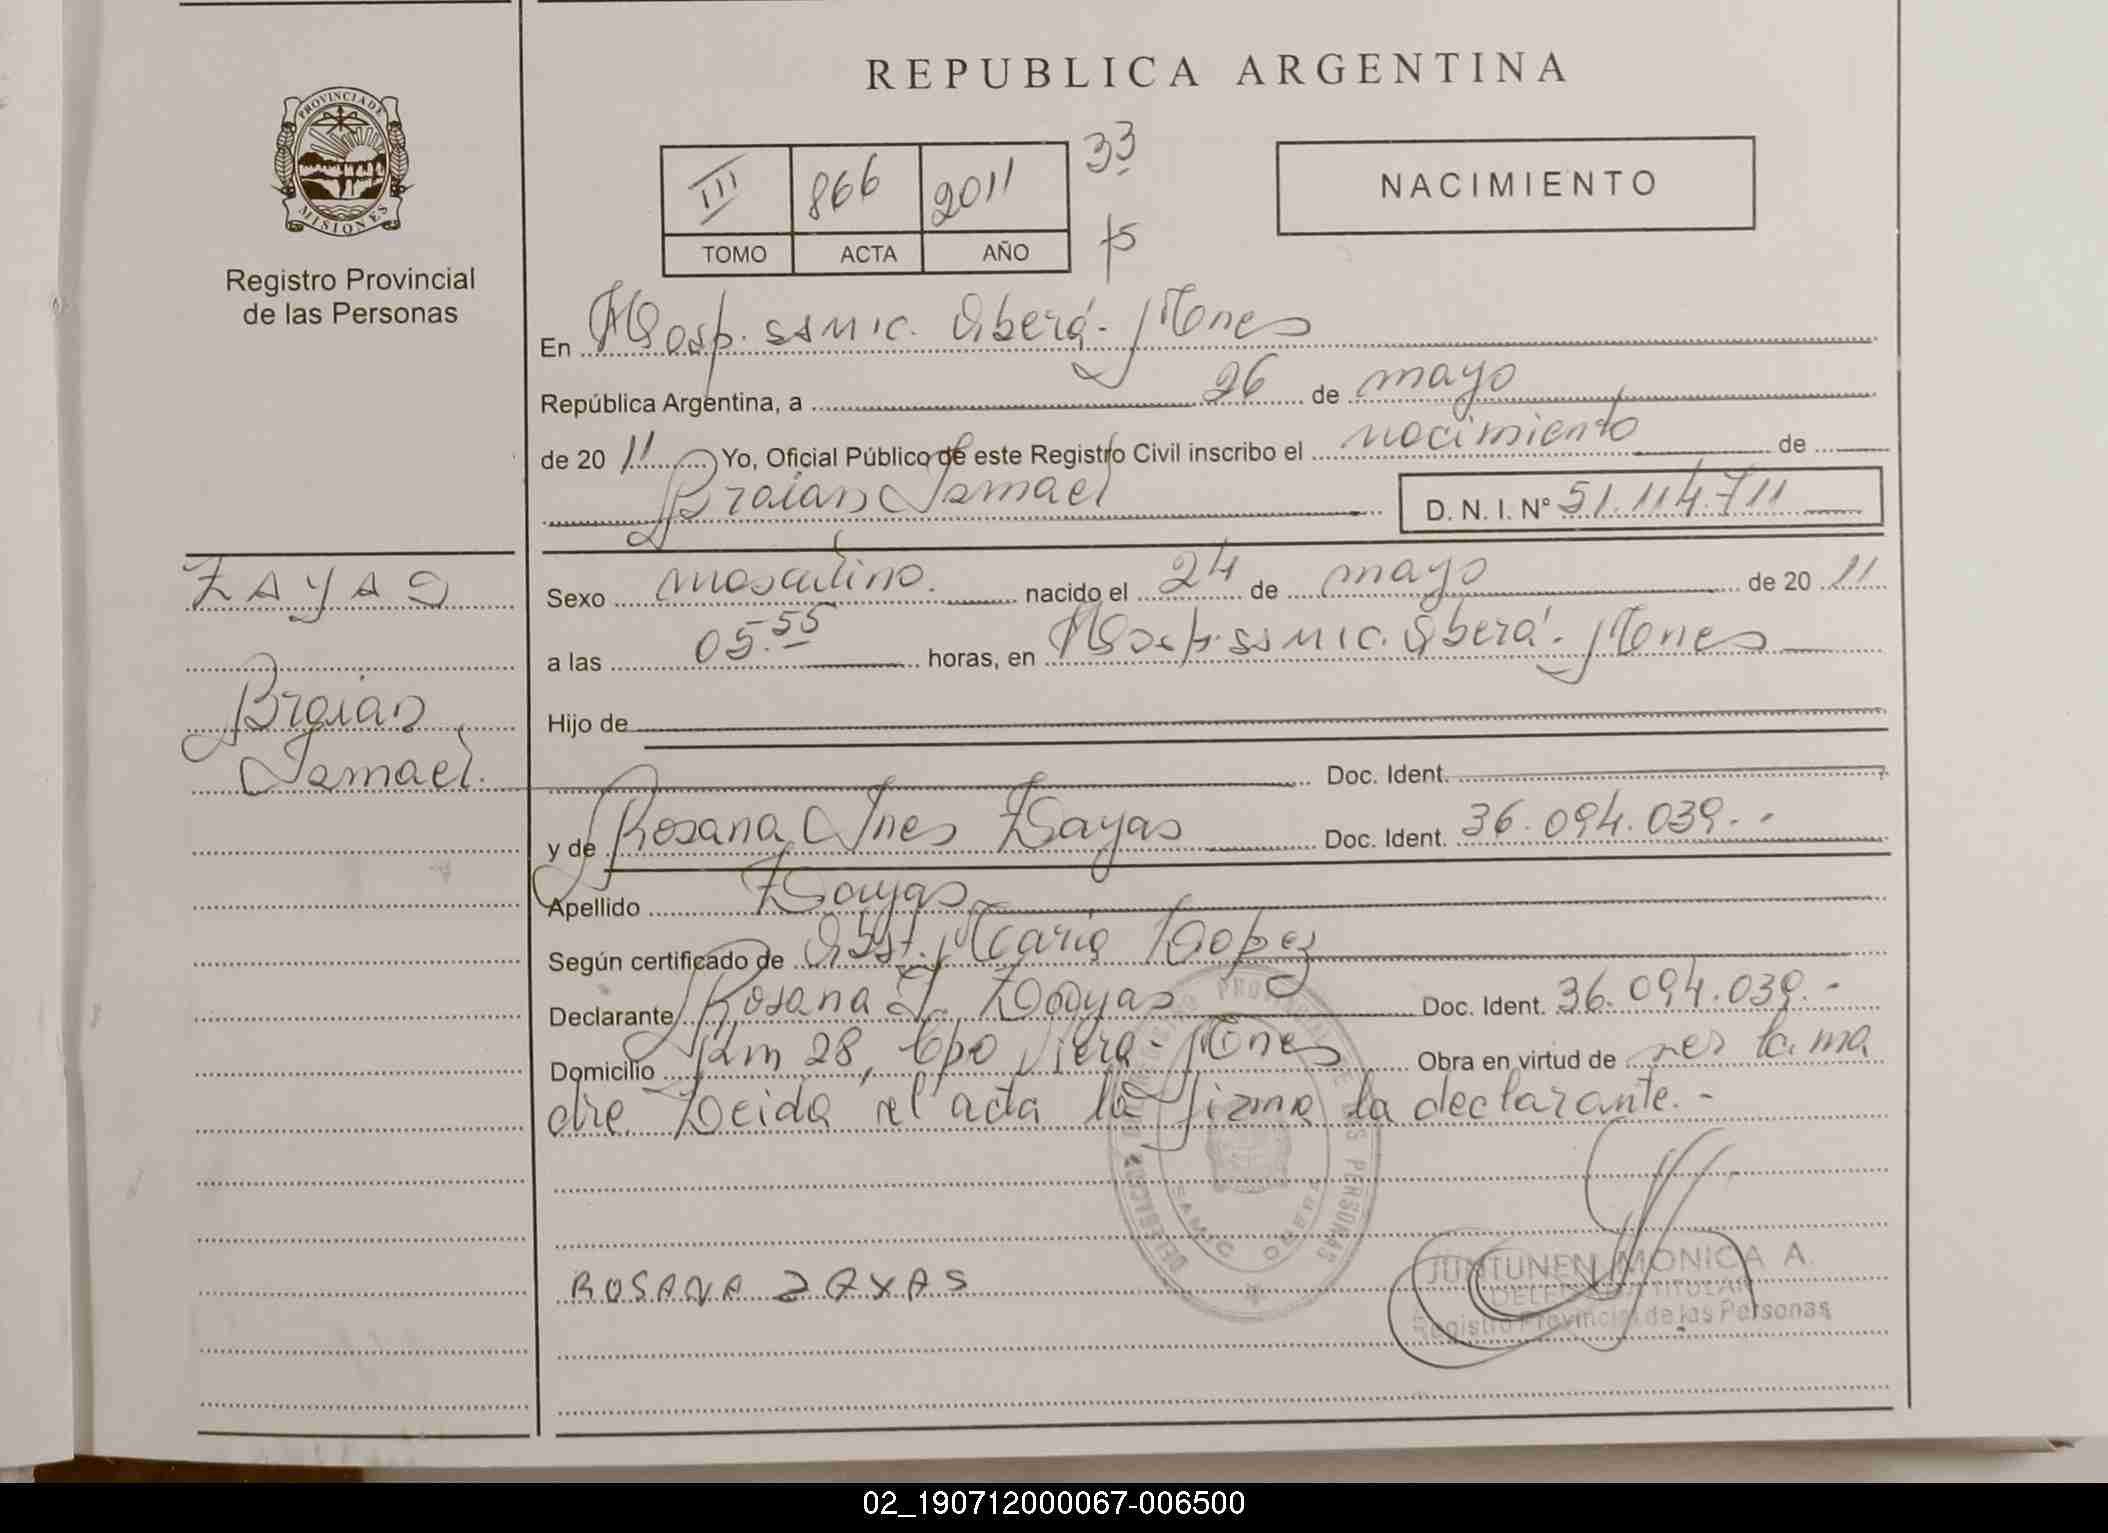 REPUBLICA ARGENTINA
PROVINCIA DE
MISIONES
Registro Provincial
de las Personas
III 866 2011 33
TOMO ACTA AÑO 75
NACIMIENTO
En Hosp. SAMIC. Oberá - Mnes
República Argentina, a 26 de mayo
de 2011 Yo, Oficial Público de este Registro Civil inscribo el nacimiento de
Braian Ismael D. N. I. Nº 51.114.711
ZAYAS
Braian
Ismael.
Sexo masculino. nacido el 24 de mayo de 2011
a las 05.55 horas, en Hosp. SAMIC. Oberá - Mnes
Hijo de
Doc. Ident.
y de Rosana Ines Zayas Doc. Ident. 36.094.039.-
Apellido Zayas
Según certificado de Obst. Maria Lopez
Declarante Rosana I. Zayas Doc. Ident. 36.094.039.-
Domicilio Km 28, Cpo Viera - Mnes Obra en virtud de ser la ma
dre. Leida el acta la firma la declarante.-
REGISTRO PROVINCIAL DE LAS PERSONAS
SAMIC OBERA
ROSANA ZAYAS
JUNTUNEN MONICA A.
TITULAR
Registro Provincial de las Personas
02_190712000067-006500